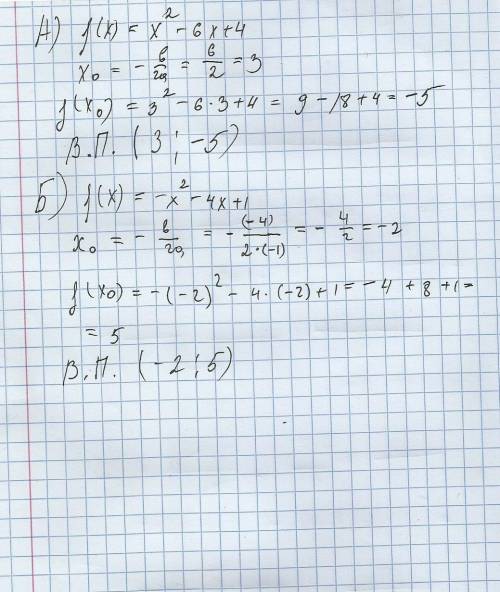 А) f(x) = x² - 6x + 4
x₀ = - в/2a = 6/2 = 3
f(x₀) = 3² - 6·3 + 4 = 9 - 18 + 4 = -5
В.П. (3 ; -5)
Б) f(x) = -x² - 4x + 1
x₀ = - в/2a = - (-4)/2·(-1) = - 4/2 = -2
f(x₀) = -(-2)² - 4·(-2) + 1 = -4 + 8 + 1 =
= 5
В.П. (-2 ; 5)